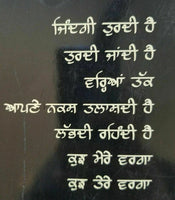 ਜ਼ਿੰਦਗੀ ਤੁਰਦੀ ਹੈ
ਤੁਰਦੀ ਜਾਂਦੀ ਹੈ
ਵਰ੍ਹਿਆਂ ਤੱਕ
ਆਪਣੇ ਨਕਸ਼ ਤਲਾਸ਼ਦੀ ਹੈ
ਲੱਭਦੀ ਰਹਿੰਦੀ ਹੈ
ਕੁਝ ਮੇਰੇ ਵਰਗਾ
ਕੁਝ ਤੇਰੇ ਵਰਗਾ